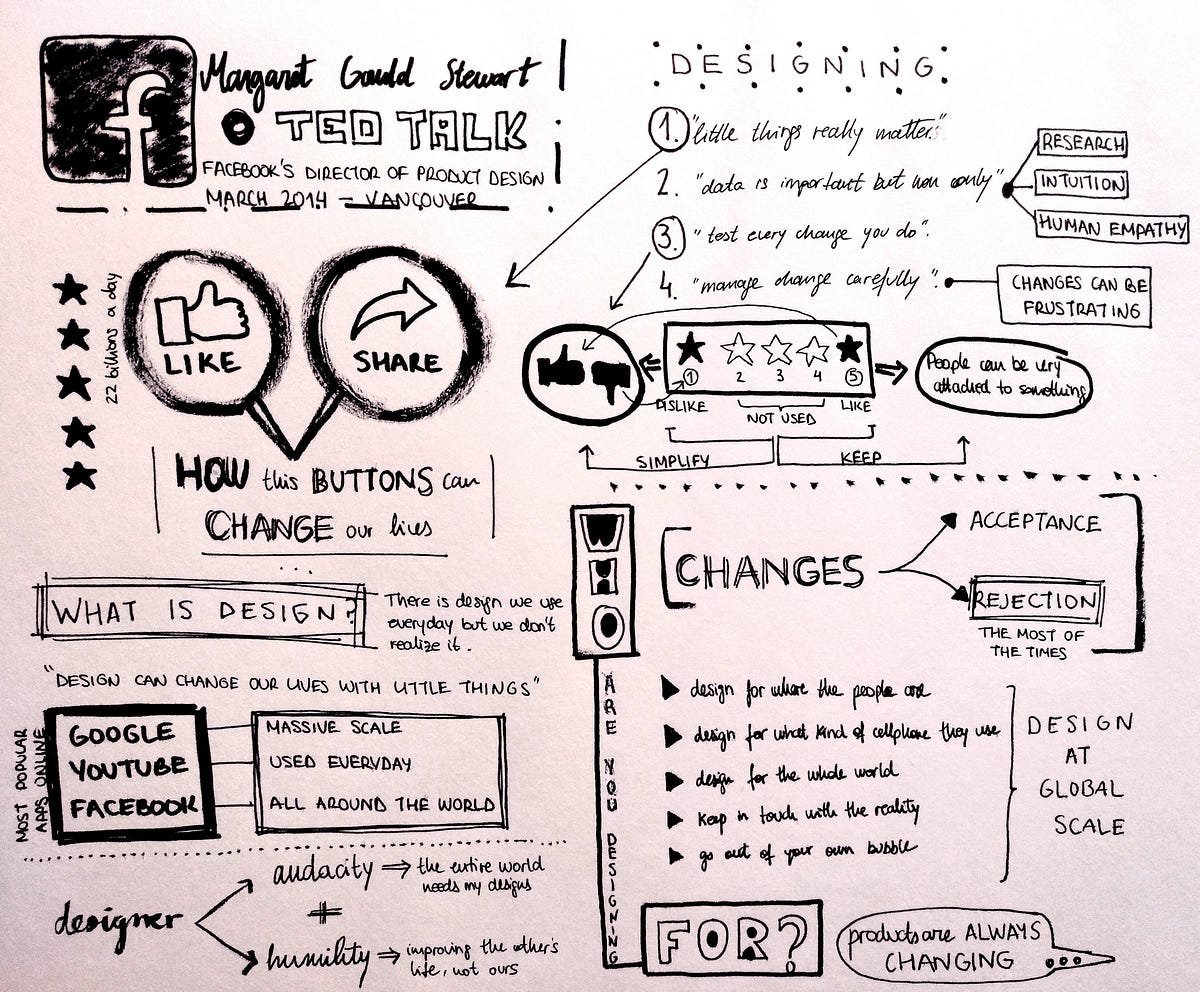 f
Margaret Gould Stewart
TED TALK
FACEBOOK'S DIRECTOR OF PRODUCT DESIGN
MARCH 2014 – VANCOUVER
22 billions a day
LIKE
SHARE
HOW this BUTTONS can
CHANGE our lives
...
WHAT IS DESIGN?
There is design we use
everyday but we don't
realize it.
"DESIGN CAN CHANGE OUR LIVES WITH LITTLE THINGS"
MOST POPULAR
APPS ONLINE
GOOGLE
YOUTUBE
FACEBOOK
MASSIVE SCALE
USED EVERYDAY
ALL AROUND THE WORLD
designer
audacity ⇒ the entire world
needs my designs
+
humility ⇒ improving the other's
life, not ours
DESIGNING
1. "little things really matters".
2. "data is important but non only"
RESEARCH
INTUITION
HUMAN EMPATHY
3. "test every change you do".
4. "manage change carefully".
CHANGES CAN BE
FRUSTRATING
1 2 3 4 5
DISLIKE
NOT USED
LIKE
People can be very
attached to something
SIMPLIFY
KEEP
CHANGES
ACCEPTANCE
REJECTION
THE MOST OF
THE TIMES
WHO
ARE YOU DESIGNING
FOR?
design for where the people are
design for what kind of cellphone they use
design for the whole world
keep in touch with the reality
go out of your own bubble
DESIGN
AT
GLOBAL
SCALE
products are ALWAYS
CHANGING